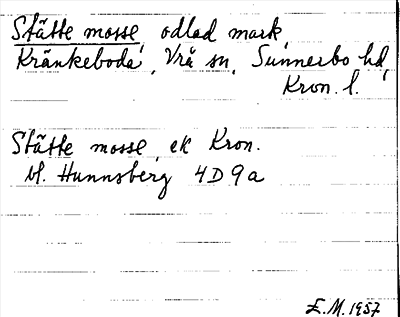 Stätte mosse, odlad mark,
Kränkeboda, Vrå sn, Sunnerbo hd,
Kron. l.
Stätte mosse, ek Kron.
bl. Hunnsberg 4D9a
E.M. 1957